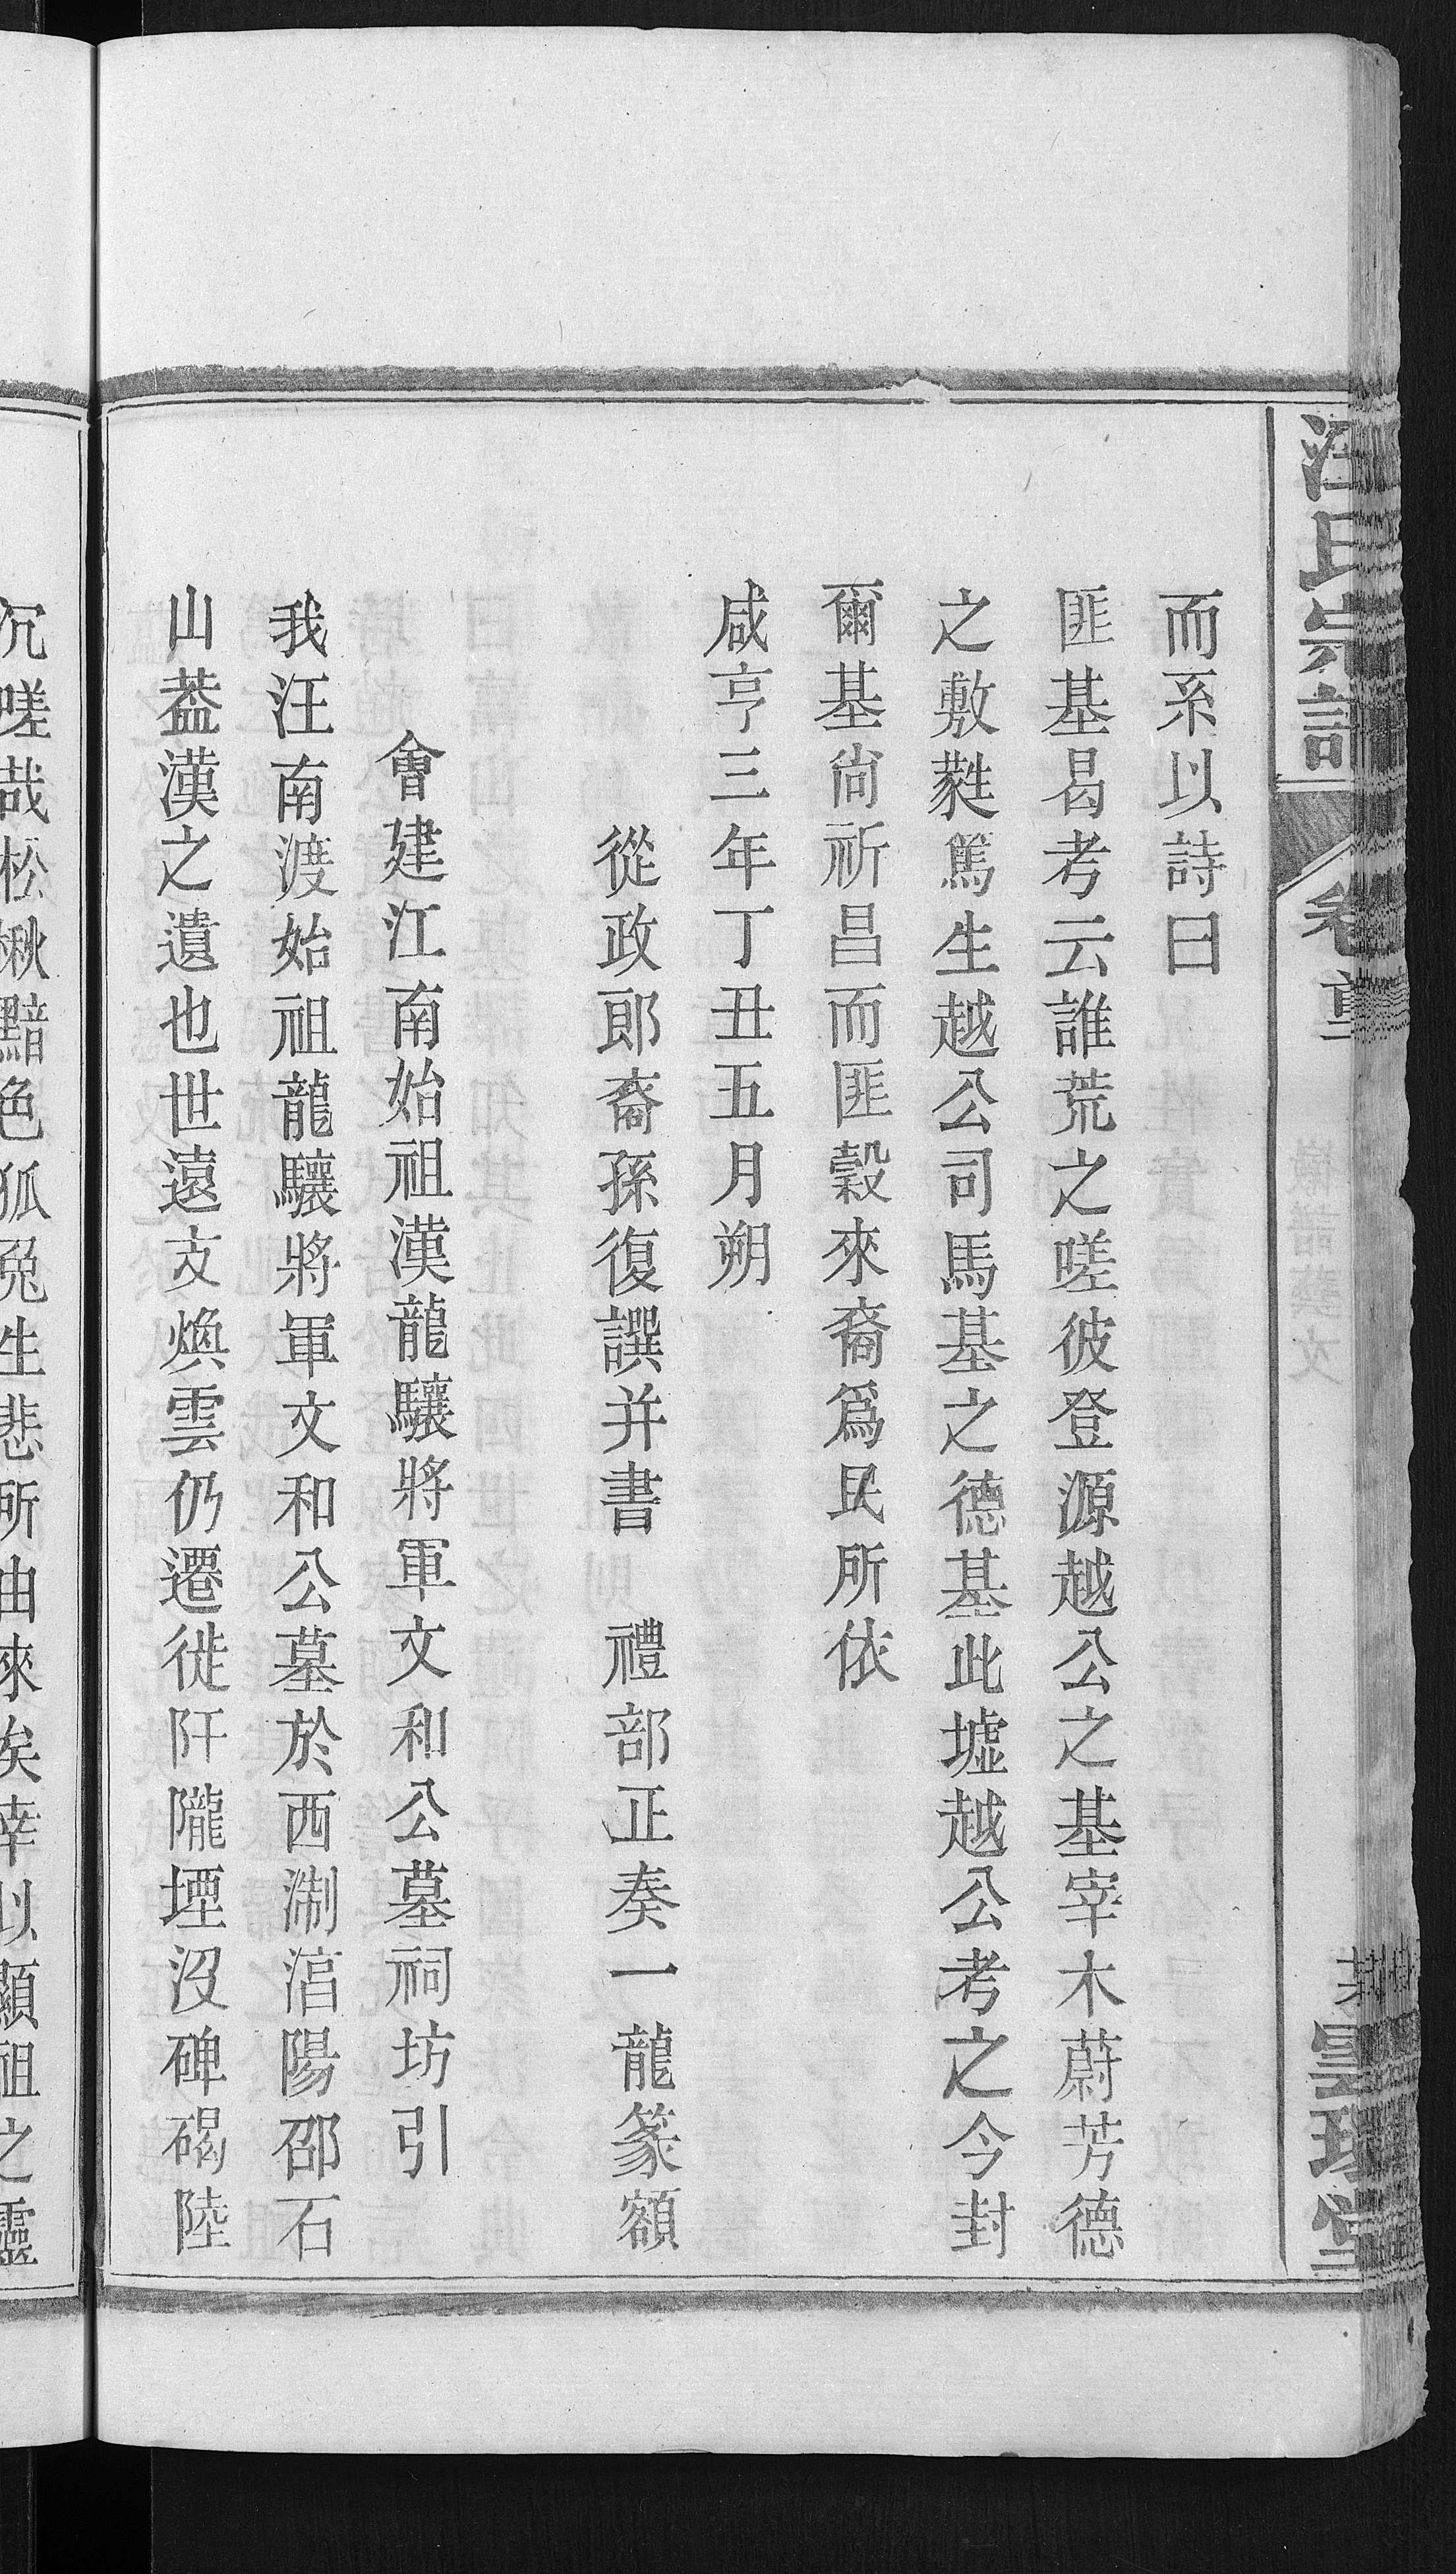 汪氏宗譜
卷首
而系以詩曰
匪基曷考云誰荒之嗟彼登源越公之基宰木蔚芳德
之敷蕤篤生越公司馬基之德基此墟越公考之今封
爾基尚祈昌而匪穀來裔爲民所依
咸亨三年丁丑五月朔
從政郎裔孫復譔并書 禮部正奏一龍篆額
會建江南始祖漢龍驤將軍文和公墓祠坊引
我汪南渡始祖龍驤將軍文和公墓於西淛湻陽邵石
山葢漢之遺也世遠支煥雲仍遷徙阡隴堙沒碑碣陸
沉嗟哉松楸黯色狐兔生悲所由來矣幸以顯祖之靈